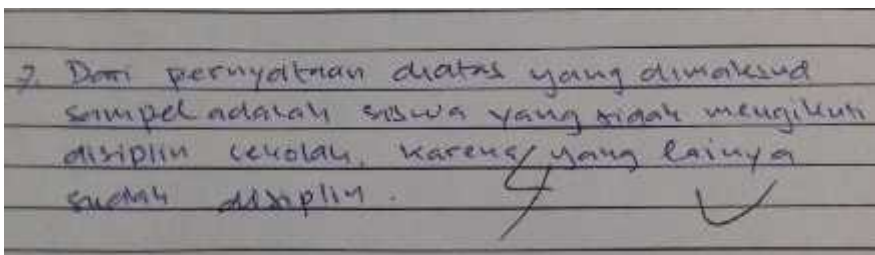 7. Dari pernyataan diatas yang dimaksud
sampel adalah siswa yang tidak mengikuti
disiplin sekolah, karena yang lainya
sudah disiplin.
4